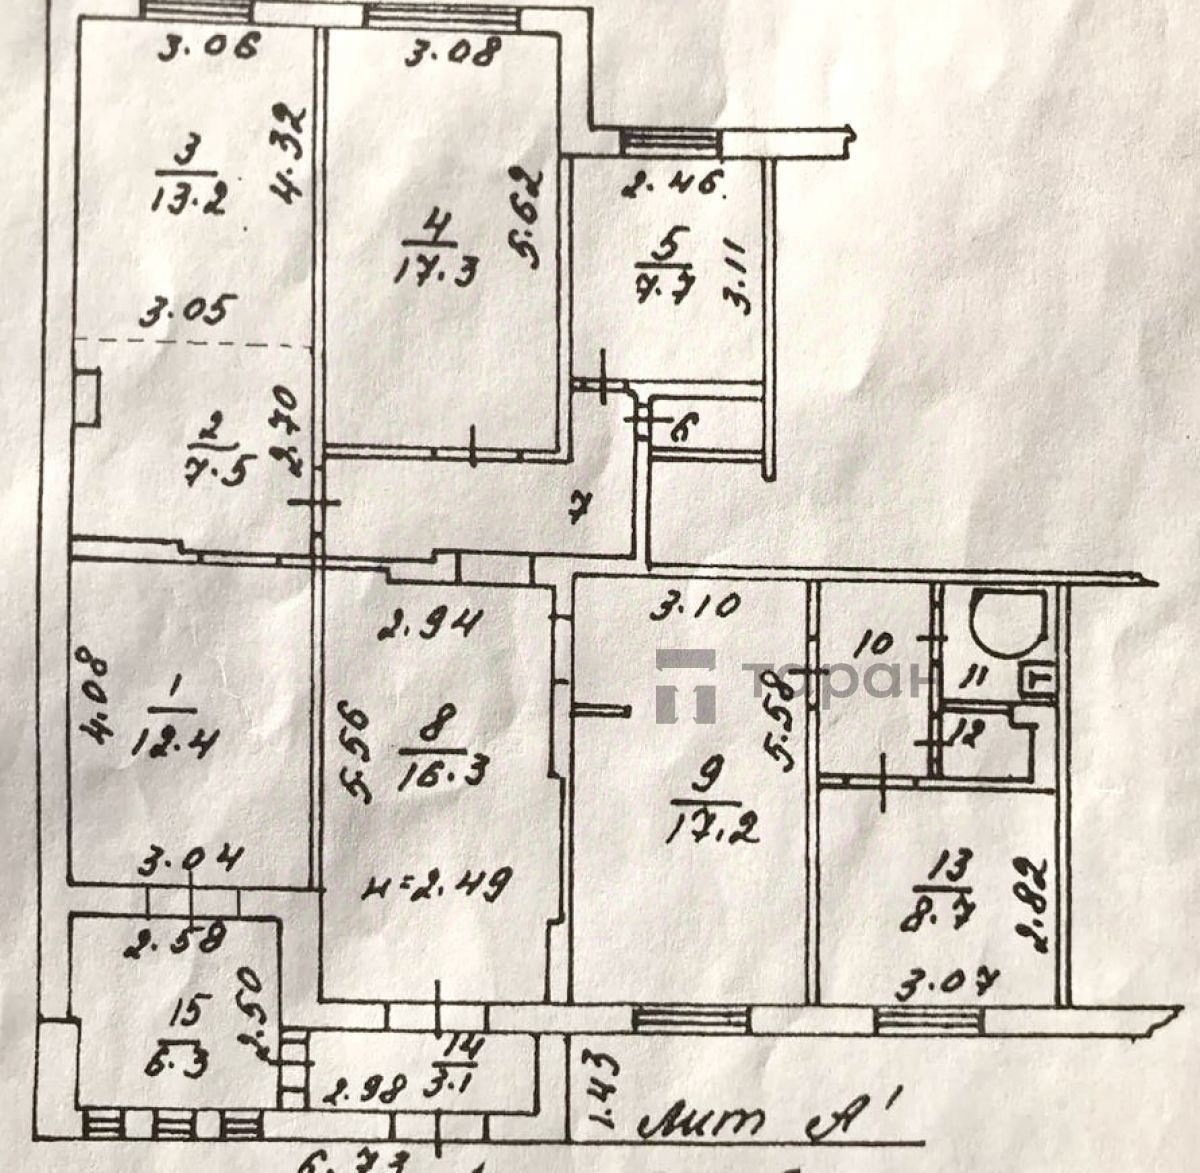 3.06
3.08
4.32
3
13.2
5.62
4
17.3
2.46
5
7.7
3.11
3.05
2
7.5
2.70
6
7
2.94
3.10
10
11
Т
торан
4.08
1
12.4
5.56
8
16.3
5.58
12
9
17.2
3.04
н=2.49
13
8.7
2.82
3.07
2.58
15
6.3
2.50
14
3.1
2.98
1.43
Лит А'
6.73